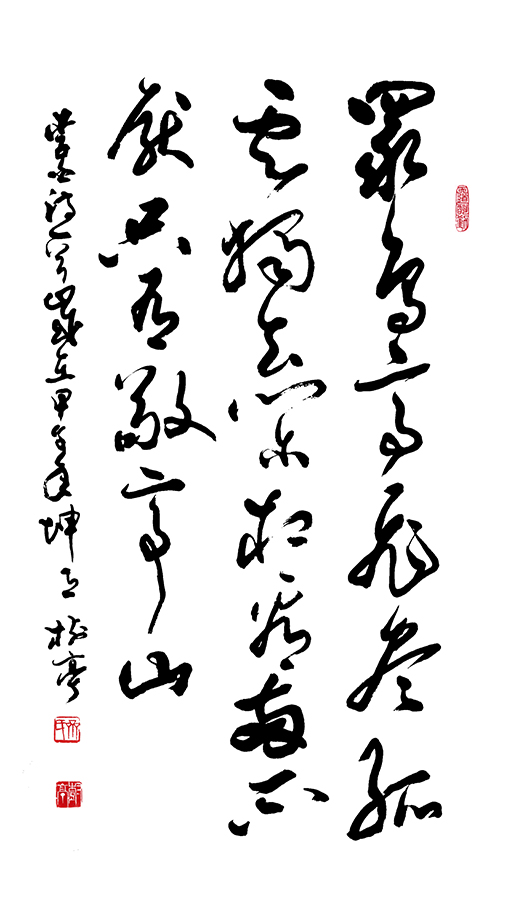 眾鳥高飛盡孤
雲獨去閑相看兩不
厭只有敬亭山
白詩一首歲在甲午年坤樹亭